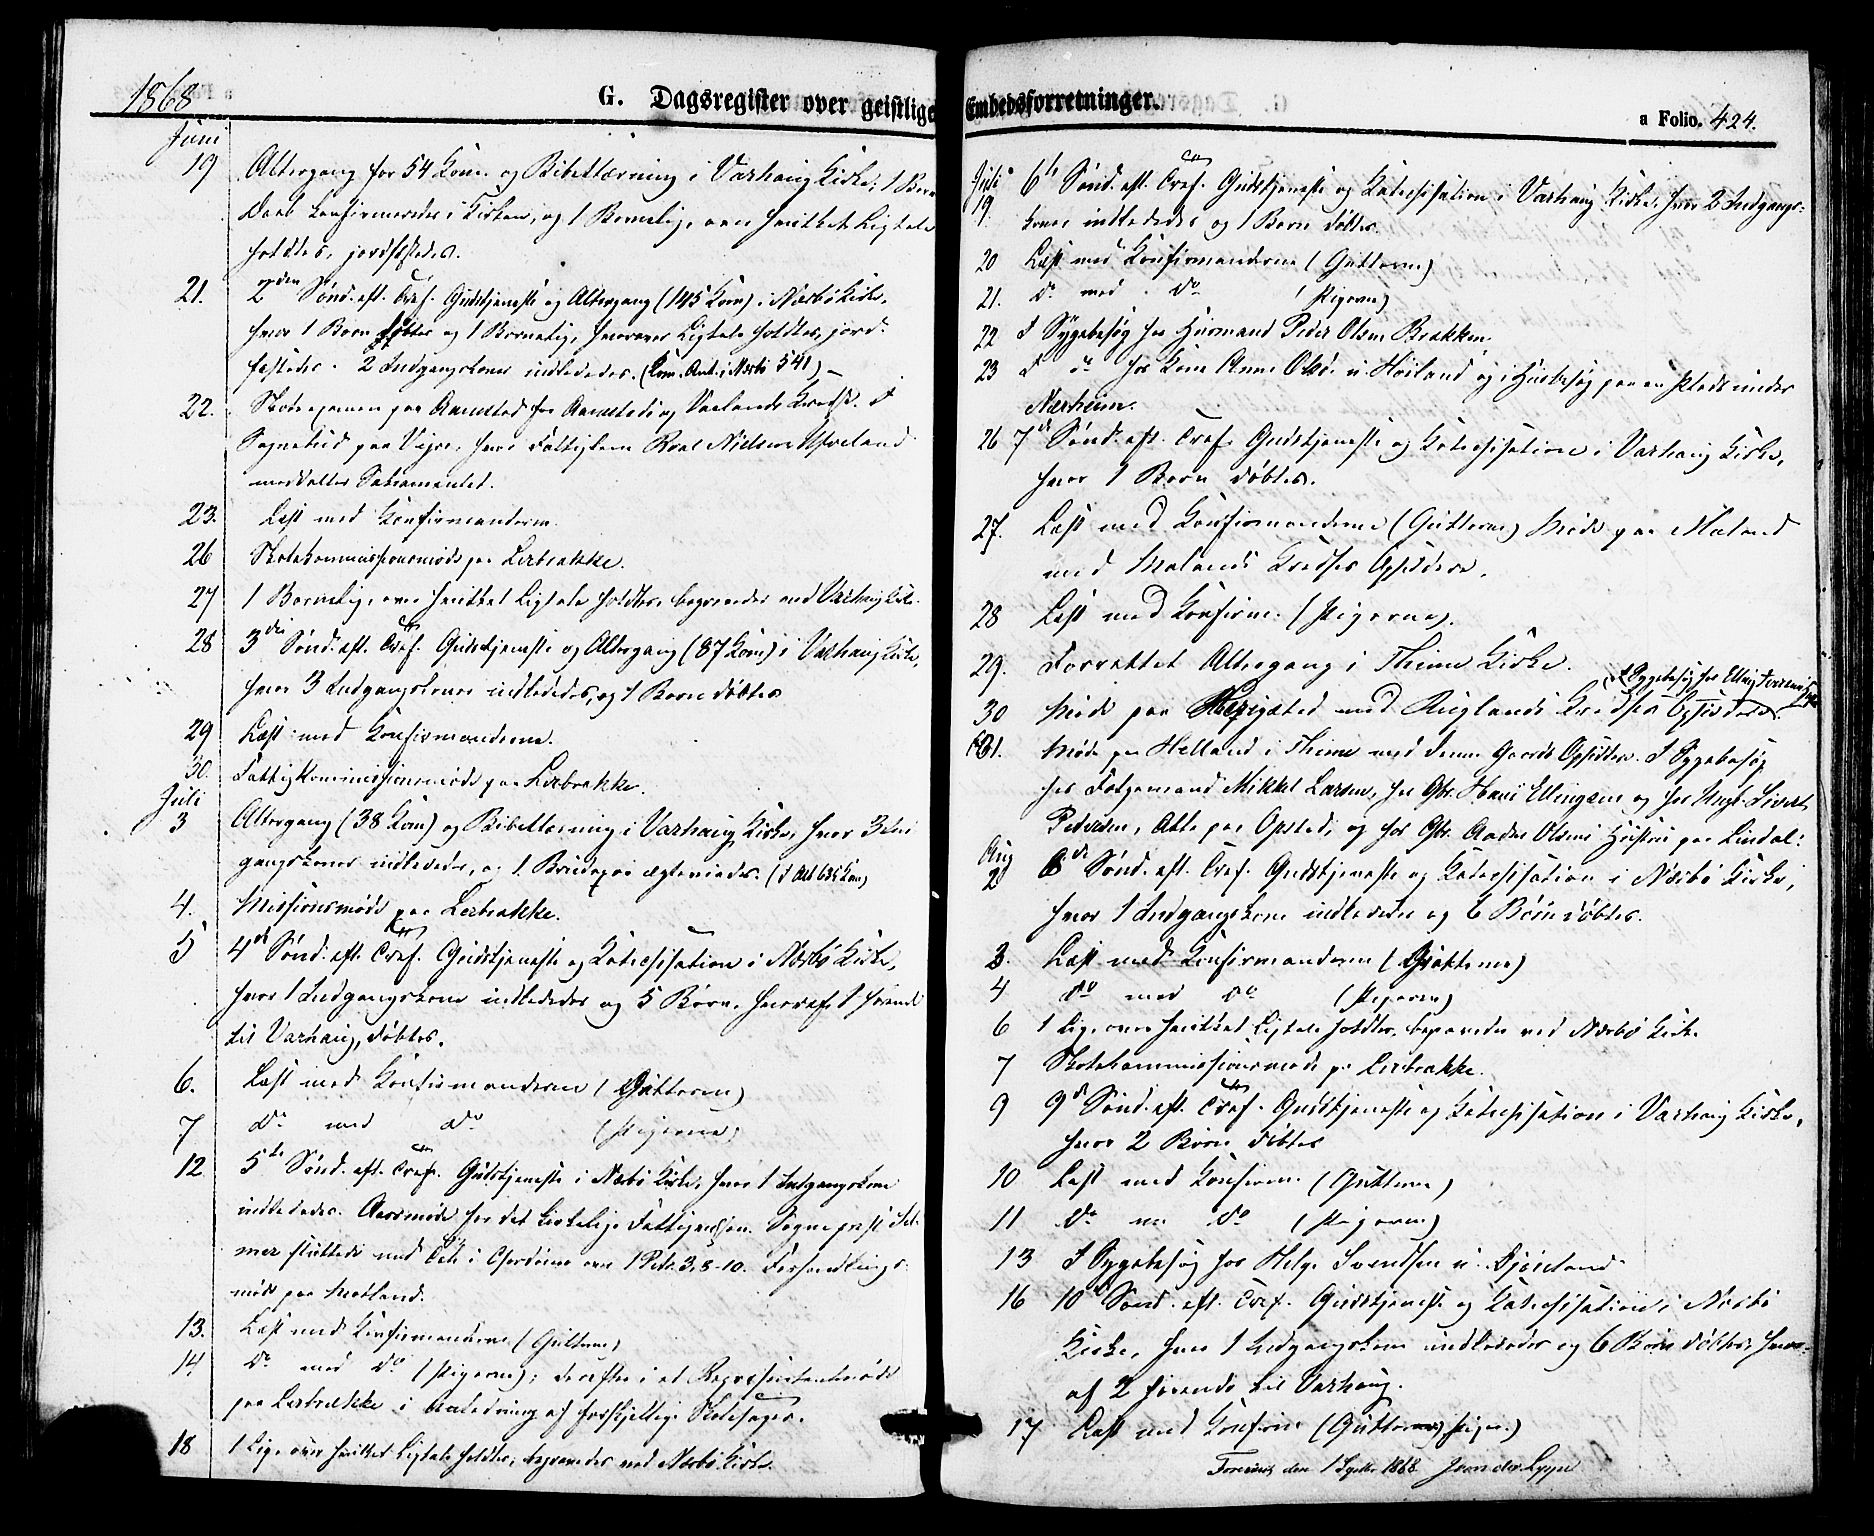 1868
G. Dagsregister over geistlige Embedsforretninger.
a Folio. 424.
Juni
19 Altergang for 54 Kom. og Bibellæsning i Varhaug Kirke; 1 Barn
Daab confirmeredes i Kirken, og 1 Barnelig, over hvilket Ligtale
holdtes, jordfæstedes.
21. 2den Sønd. eft. Tref. Gudstjeneste og Altergang (145 Kom) i Nærbø Kirke,
hvor 1 Barn døbtes og 1 Barnelig, hvorover Ligtale holdtes, jord-
fæstedes. 2 Indgangskoner indlededes. (Kom. Ant. i Nærbø 541) –
22. Skoleexamen paa Aarrestad for Aarrestads og Vaalands Kreds. I
Sognebud paa Vigre, hvor Fattiglem Roal Nielsen
modtoges Sakramentet.
23. Læst med Konfirmanderne.
26 Skolekommissionsmøde paa Lerbrække.
27 1 Barnelig, over hvilket Ligtale holdtes, begravedes ved Varhaug Kirke.
28 3die Sønd. eft. Tref. Gudstjeneste og Altergang (87 Kom) i Varhaug Kirke,
hvor 3 Indgangskoner indlededes, og 1 Barn døbtes
29 Læst med Konfirmanderne.
30. Fattigkommissionsmøde paa Lerbrække.
Juli
3 Altergang (38 Kom) og Bibellæsning i Varhaug Kirke, hvor 3 Ind
gangskoner indlededes, og 1 Brudepar ægteviedes. (I Alt 635 Kom)
4. Missionsmøde paa Lerbrække.
5 4de Sønd. eft. Tref. Gudstjeneste og Katechisation i Nærbø Kirke,
hvor 1 Indgangskone indlededes og 5 Børn, hvoraf 1 hørende
til Varhaug, døbtes.
6. Læst med Konfirmanderne (Gutterne)
7 Do med Do (Pigerne)
12 5te Sønd. eft. Tref. Gudstjeneste i Nærbø Kirke, hvor 1 Indgangskone
indlededes. Aarsmøde for det kirkelige Fattigvæsen. Sognepræst
mer sluttede med over 1 Petr. 3, 8-10. Forhandlings-
møde paa Motland.
13. Læst med Konfirmanderne (Gutterne)
14 Do med Do (Pigerne); derefter i et Repræsentantmøde
paa Lerbrække i Anledning af forskjellige Skolesager.
18 1 Lig, over hvilket Ligtale holdtes, begravedes ved Nærbø Kirke.
Juli
19. 6te Sønd. eft. Tref. Gudstjeneste og Katechisation i Varhaug Kirke, hvor 2 Indgangs-
koner indlededes og 1 Barn døbtes.
20 Læst med Konfirmanderne (Gutterne)
21. Do med Do (Pigerne)
22 I Sygebesøg hos Husmand Peder Olsen Brækken.
23 I do hos Kone Anne Olsd. u. Høiland og i Husbesøg paa en Plads under
Nærheim.
26 7de Sønd. eft. Tref. Gudstjeneste og Katechisation i Varhaug Kirke,
hvor 1 Barn døbtes.
27. Læst med Konfirmanderne (Gutterne) Møde paa Maland
med Malands Kredses Opsiddere.
28 Læst med Konfirm. (Pigerne).
29. Forrettet Altergang i Thime Kirke.
30 Møde paa med Auglands Kredses Opsiddere. (I Sygebesøg hos Elling
31. Møde paa Helland i Thime med denne Gaards Opsiddere. I Sygebesøg
hos Følgemand Mikkel Larsen, hos Gbr. Hans Ellingsen og hos Ungk. Sivert
Pedersen, Alle paa Opstad, og hos Gbr. Aadne Olsens Hustru paa Lindal.
Aug
2 8de Sønd. eft. Tref. Gudstjeneste og Katechisation i Nærbø Kirke,
hvor 1 Indgangskone indlededes og 6 Børn døbtes.
3. Læst med Konfirmanderne (Gutterne)
4 Do med Do (Pigerne)
6 1 Lig, over hvilket Ligtale holdtes, begravedes ved Nærbø Kirke.
7 Skolekommissionsmøde p. Lerbrække.
9 9de Sønd. eft. Tref. Gudstjeneste og Katechisation i Varhaug Kirke,
hvor 2 Børn døbtes
10 Læst med Konfirm. (Gutterne)
11 Do m Do (Pigerne)
13 I Sygebesøg hos Helge Svendsen u.
16 10de Sønd. eft. Tref. Gudstjeneste og Katechisation i Nærbø
Kirke, hvor 1 Indgangskone indlededes og 6 Børn døbtes, hvor-
af 2 hørende til Varhaug.
17 Læst med Konfirm (Gutterne, Piger.)
den 1 Septbr 1868